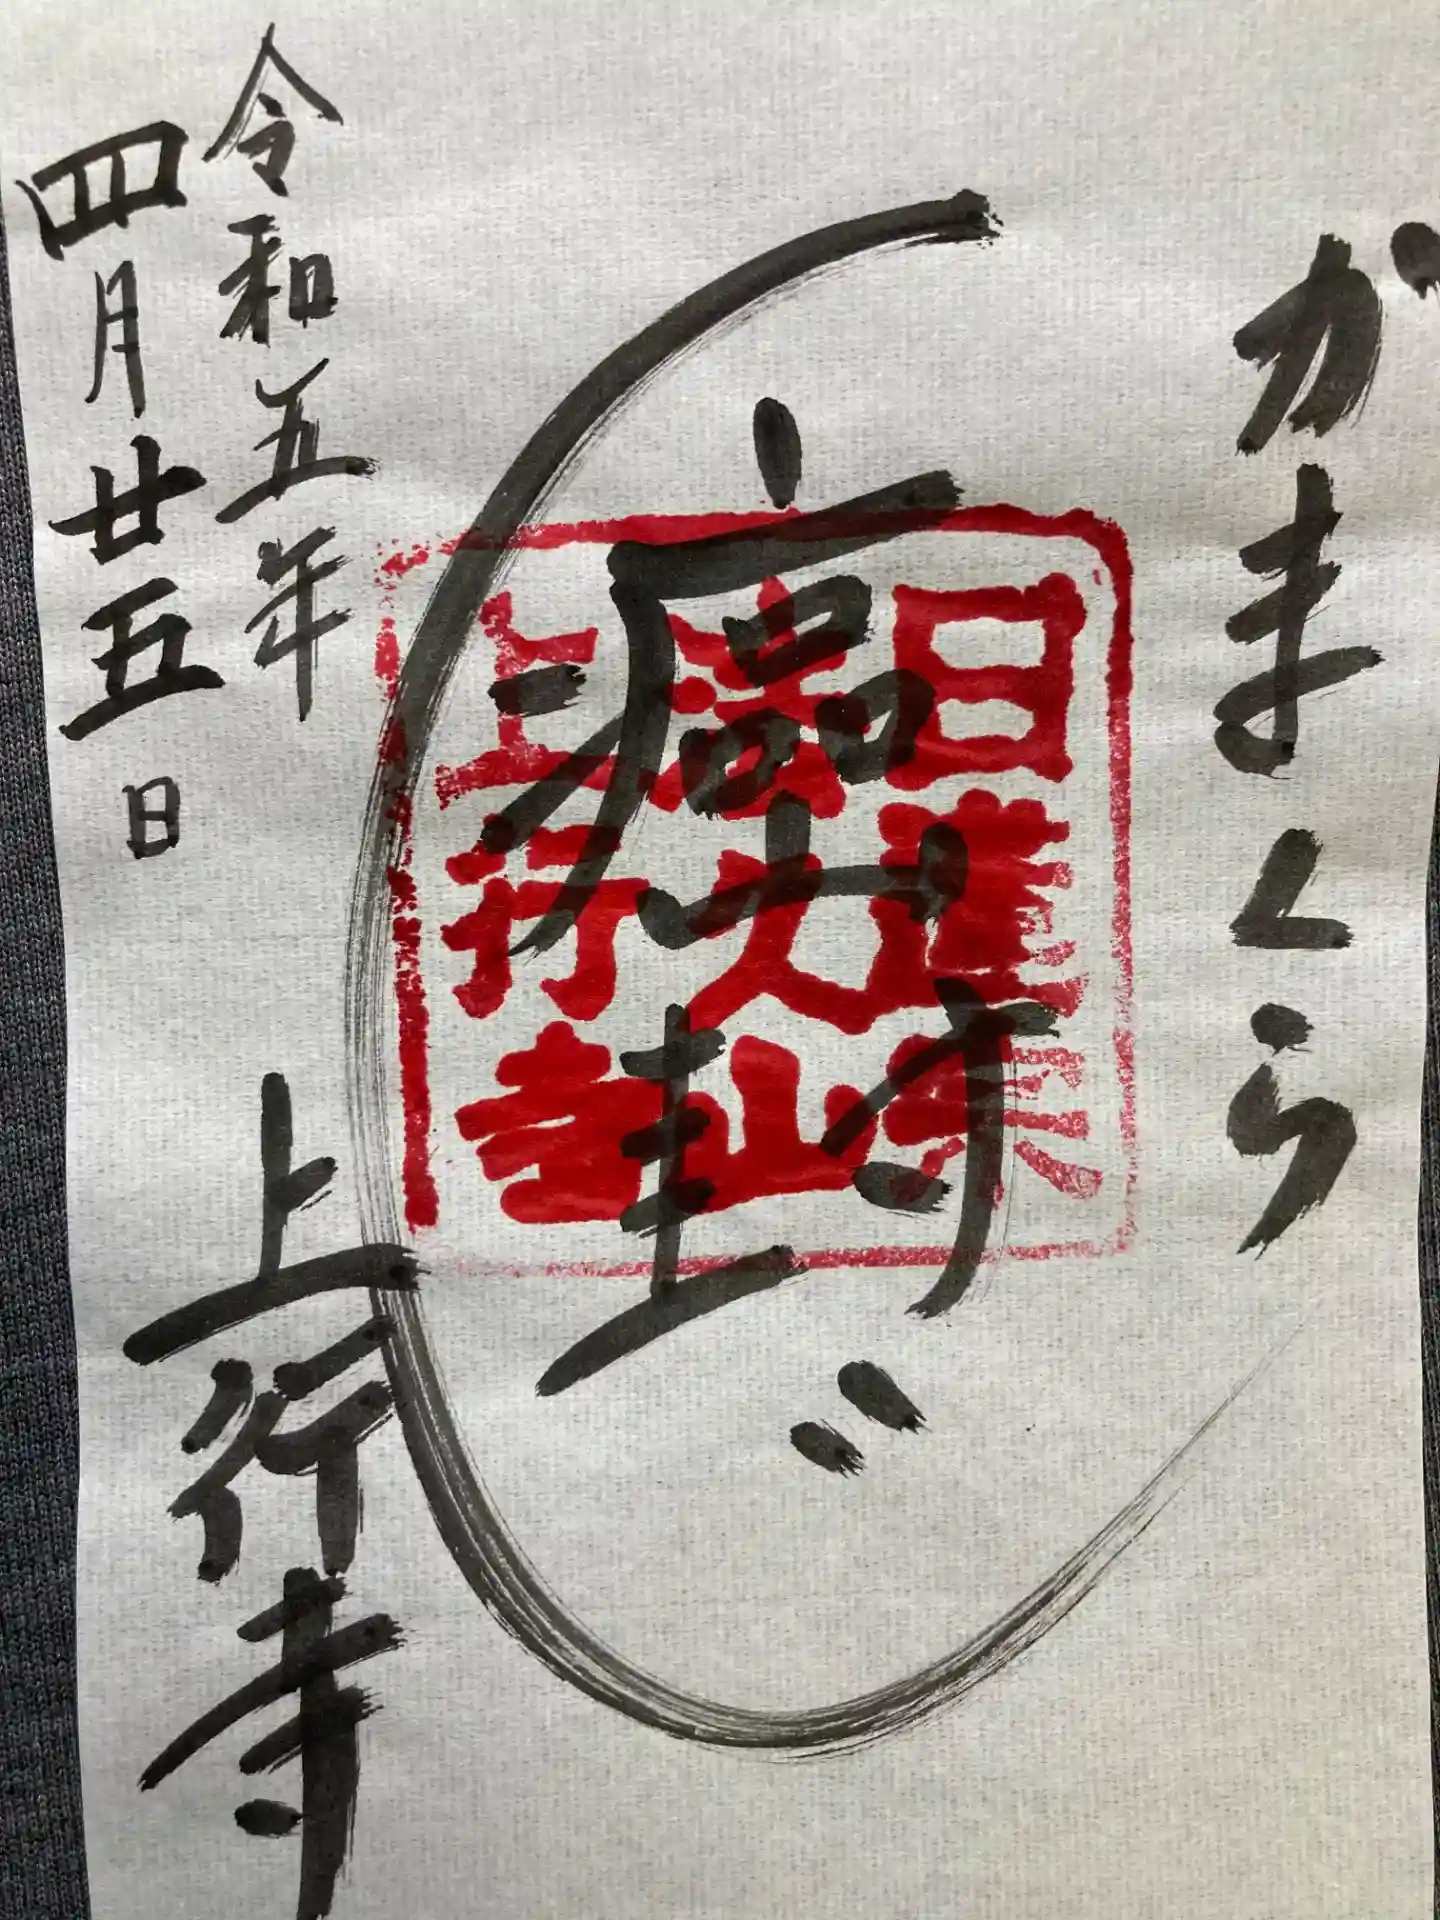 かまくら
癌封じ
日蓮宗
法久山
上行寺
令和五年
四月廿五日
上行寺